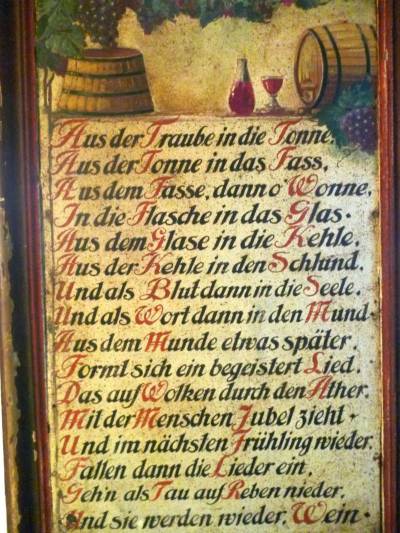 Aus der Traube in die Tonne,
Aus der Tonne in das Fass,
Aus dem Fasse, dann o' Wonne,
In die Flasche in das Glas.
Aus dem Glase in die Kehle,
Aus der Kehle in den Schlund,
Und als Blut dann in die Seele,
Und als Wort dann in den Mund.
Aus dem Munde etwas später,
Formt sich ein begeistert Lied,
Das auf Wolken durch den Äther,
Mit der Menschen Jubel zieht.
Und im nächsten Frühling wieder,
Fallen dann die Lieder ein,
Geh'n als Tau auf Reben nieder,
Und sie werden wieder, Wein.